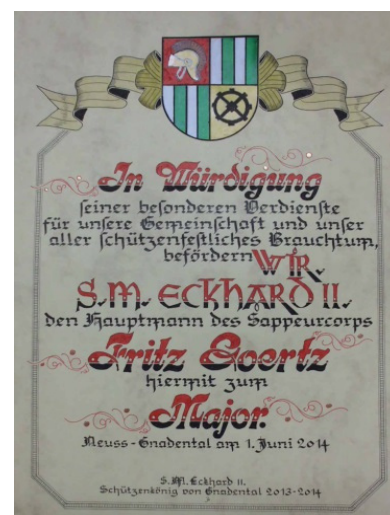 In Würdigung
seiner besonderen Verdienste
für unsere Gemeinschaft und unser
aller schützenfestliches Brauchtum,
befördern WIR.
S.M. ECKHARD II.
den Hauptmann des Sappeurcorps
Fritz Goertz
hiermit zum
Major.
Neuss-Gnadental am 1. Juni 2014
S.M. Eckhard II.
Schützenkönig von Gnadental 2013-2014